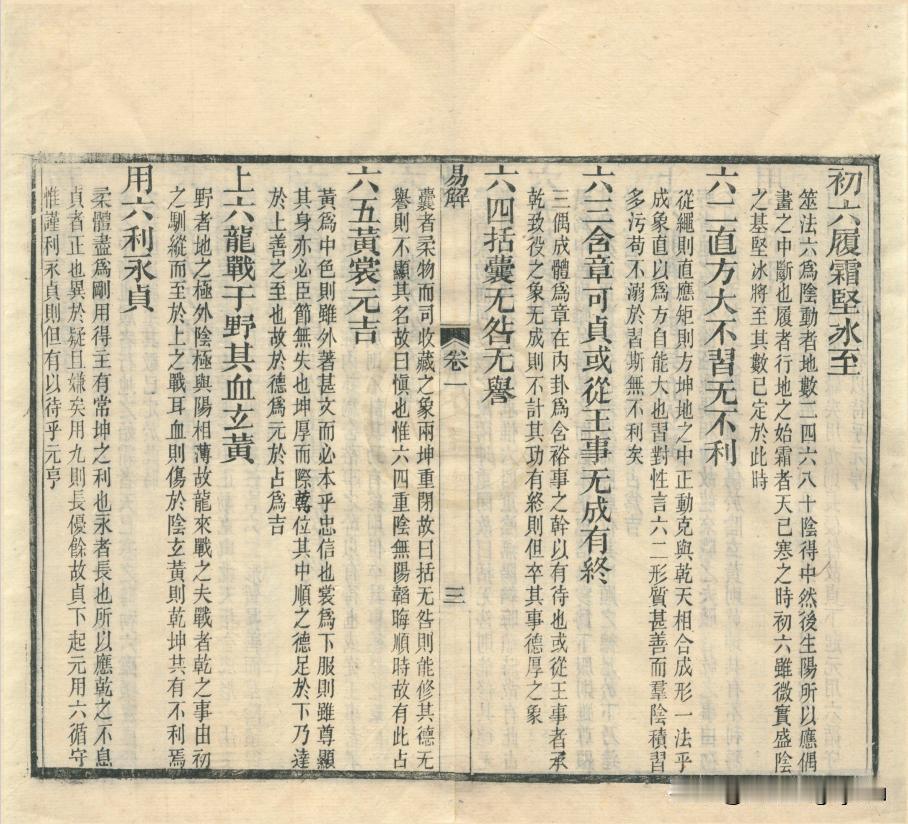 初六履霜堅冰至
筮法六爲陰動者地數二四六八十陰得中然後生陽所以應偶
畫之中斷也履者行地之始霜者天已寒之時初六雖微實盛陰
之基堅冰將至其數已定於此時
六二直方大不習无不利
從繩則直應矩則方坤地之中正動克與乾天相合成形一法乎
成象直以爲方自能大也習對性言六二形質甚善而羣陰積習
多污苟不溺於習斯無不利矣
六三含章可貞或從王事无成有終
三偶成體爲章在内卦爲含裕事之幹以有待也或從王事者承
乾致役之象无成則不計其功有終則但卒其事德厚之象
六四括囊无咎无譽
易解
卷一
三
囊者柔物而司收藏之象兩坤重閉故曰括无咎則能修其德无
譽則不顯其名故曰愼也惟六四重陰無陽韜晦順時故有此占
六五黃裳元吉
黃爲中色則雖外著甚文而必本乎忠信也裳爲下服則雖尊顯
其身亦必臣節無失也坤厚而際萬位其中順之德足於下乃達
於上善之至也故於德爲元於占爲吉
上六龍戰于野其血玄黃
野者地之極外陰極與陽相薄故龍來戰之夫戰者乾之事由初
之馴縱而至於上上之戰耳血則傷於陰玄黃則乾坤共有不利焉
用六利永貞
柔體盡爲剛用得主有常坤之利也永者長也所以應乾之不息
貞者正也異於疑且嫌矣用九則長優餘故貞下起元用六循守
惟謹利永貞則但有以待乎元亨